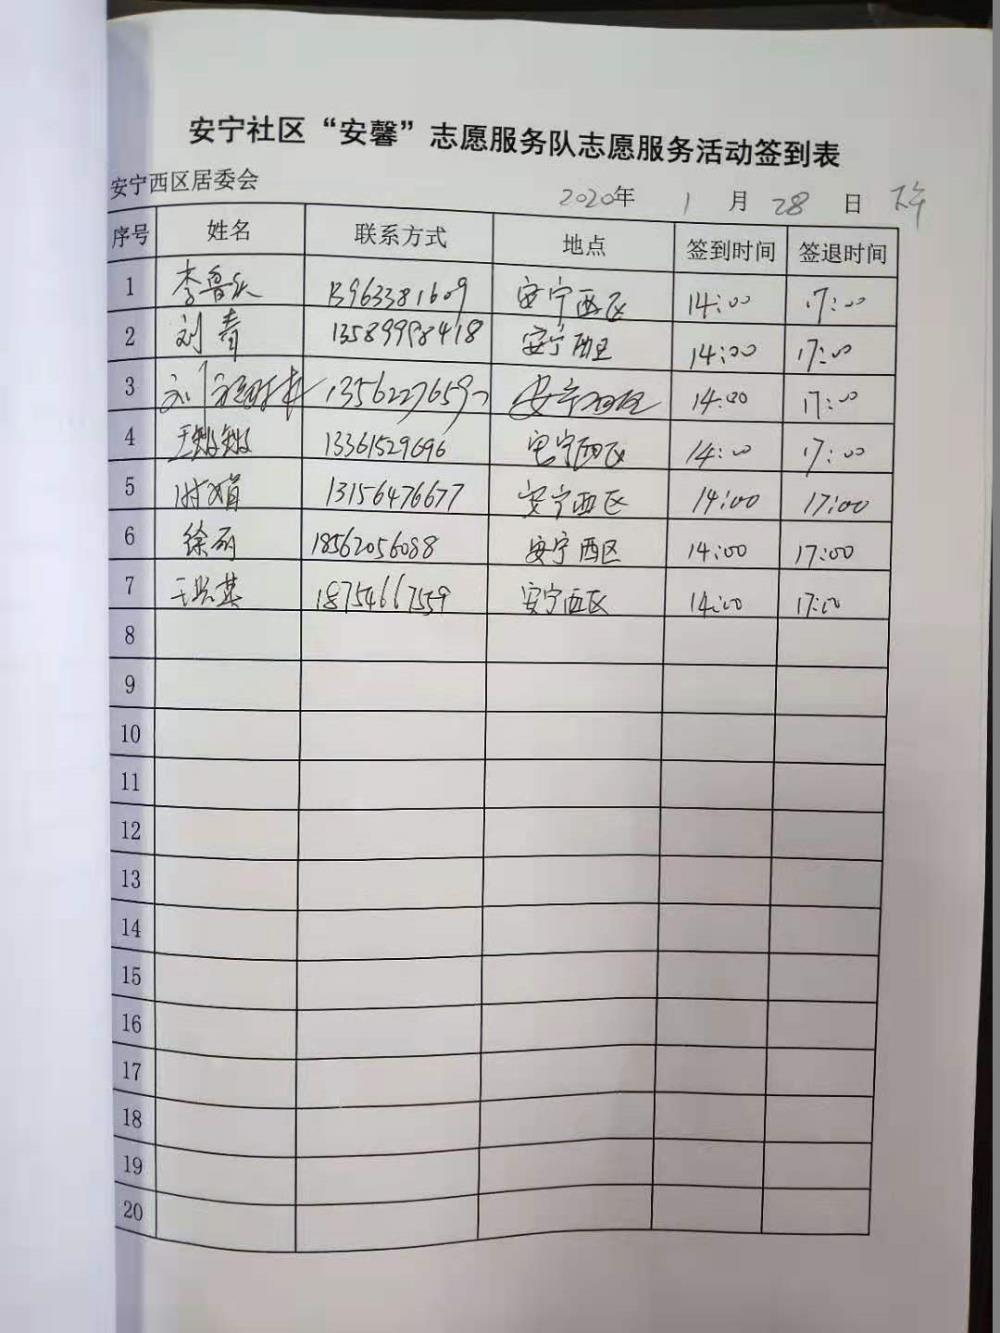 安宁社区“安馨”志愿服务队志愿服务活动签到表
安宁西区居委会 2020年 1 月 28 日 下午
序号 姓名 联系方式 地点 签到时间 签退时间
1 李鲁 13963381609 安宁西区 14:00 17:00
2 刘青 13589998418 安宁西区 14:00 17:00
3 刘 安宁西区 14:00 17:00
4 王敏敏 13361529696 安宁西区 14:00 17:00
5 13156476677 安宁西区 14:00 17:00
6 徐丽 18562056088 安宁西区 14:00 17:00
7 王 18754667559 安宁西区 14:00 17:00
8
9
10
11
12
13
14
15
16
17
18
19
20